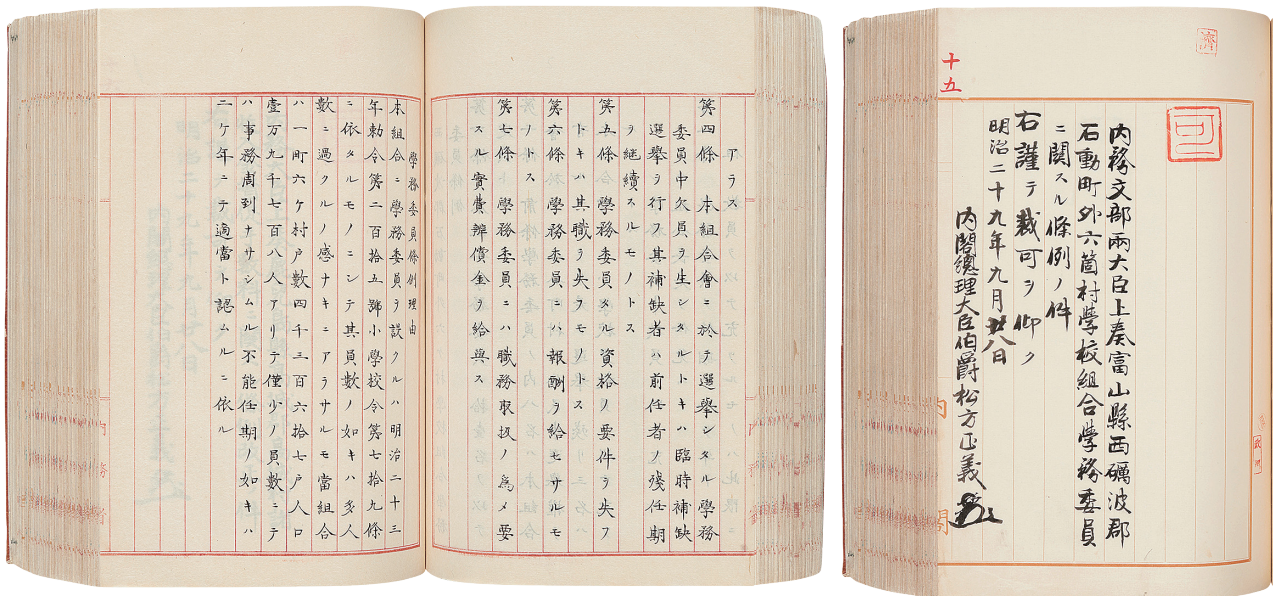 アラス
第四條 本組合會ニ於テ選擧シタル學務
委員中欠員ヲ生シタルトキハ臨時補缺
選擧ヲ行フ其補缺者ハ前任者ノ殘任期
ヲ継續スルモノトス
第五條 學務委員タル資格ノ要件ヲ失フ
トキハ其職ヲ失フモノトス
第六條 學務委員ニハ報酬ヲ給セサルモ
ノトス
第七條 學務委員ニハ職務取扱ノ為メ要
スル實費辨償金ヲ給與ス
學務委員條例理由
本組合ニ學務委員ヲ設クルハ明治二十三
年勅令第二百拾五號小學校令第七拾九條
ニ依タルモノニシテ其員數ノ如キハ多人
數ニ過クルノ感ナキニアラサルモ當組合
ハ一町六ケ村戸數四千三百六拾七戸人口
壹万九千七百八人アリテ僅少ノ員數ニテ
ハ事務周到ナサシムル不能任期ノ如キハ
二ケ年ニテ適當ト認ムルニ依ル
十五
可
内務文部兩大臣上奏富山縣西礪波郡
石動町外六箇村學校組合學務委員
ニ關スル條例ノ件
右謹テ裁可ヲ仰ク
明治二十九年九月廿八日
内閣總理大臣伯爵松方正義